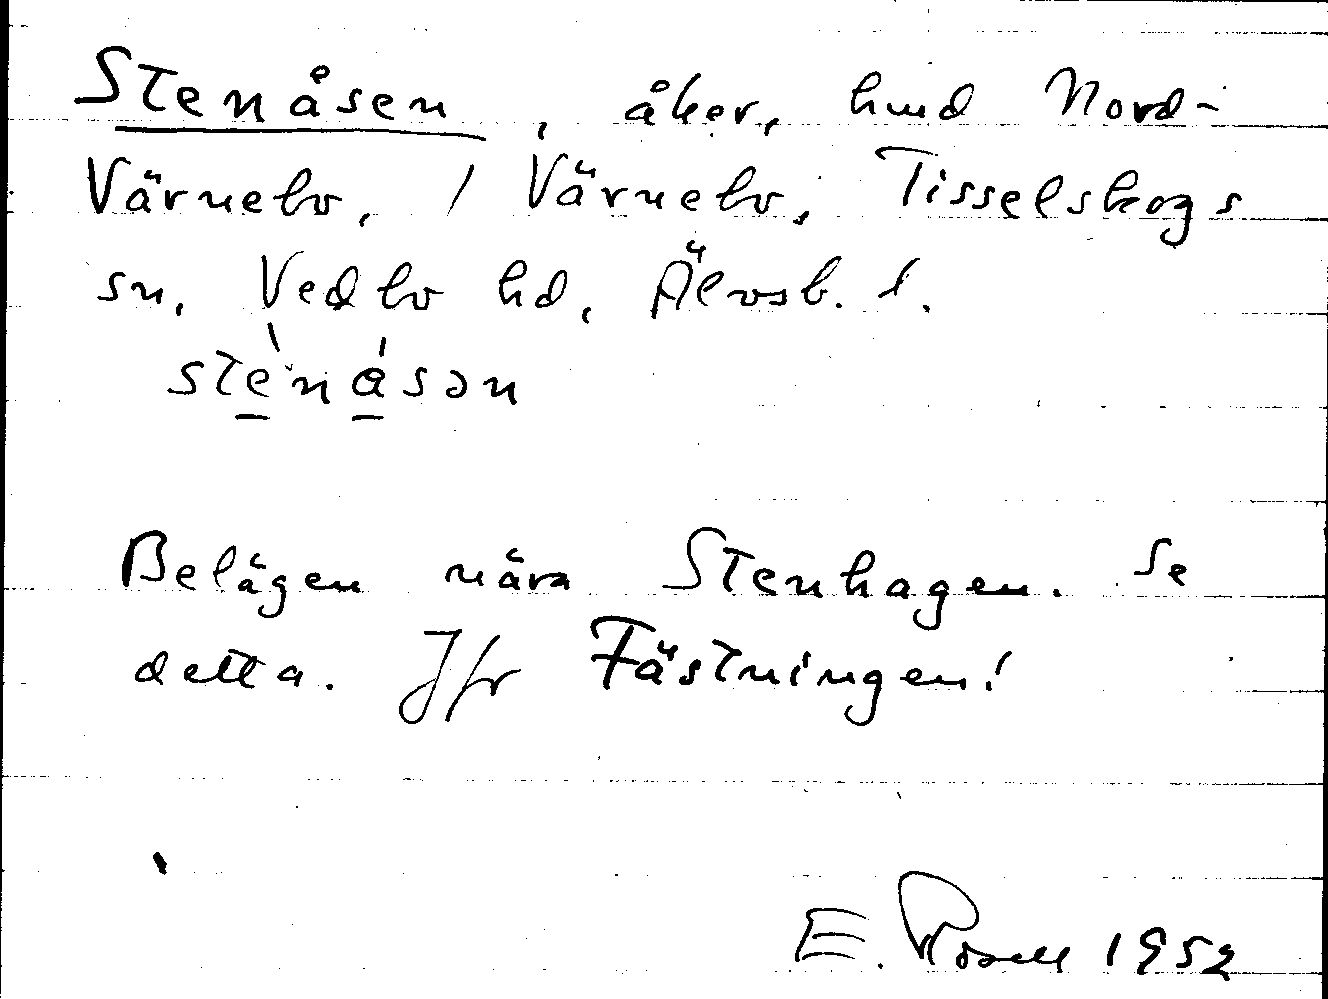 Stenåsen, åker, hmd Nord-
Värnebo, / Värnebo, Tisselskogs
sn, Vedbo hd, Älvsb. l.
stè'násən
Belägen nära Stenhagen. Se
detta. Jfr Fästningen!
E. Rosell 1952